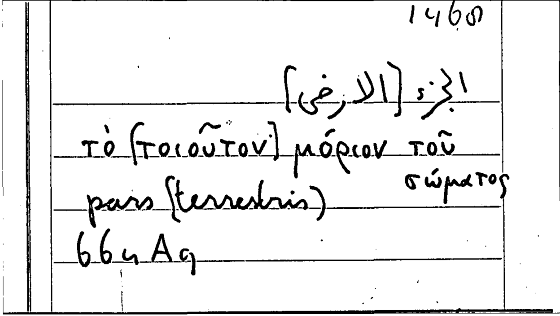 1468
الجزء [الارضى]
τὸ [τοιοῦτον] μόριον τοῦ
σώματος
pars (terrestris)
66u Aq